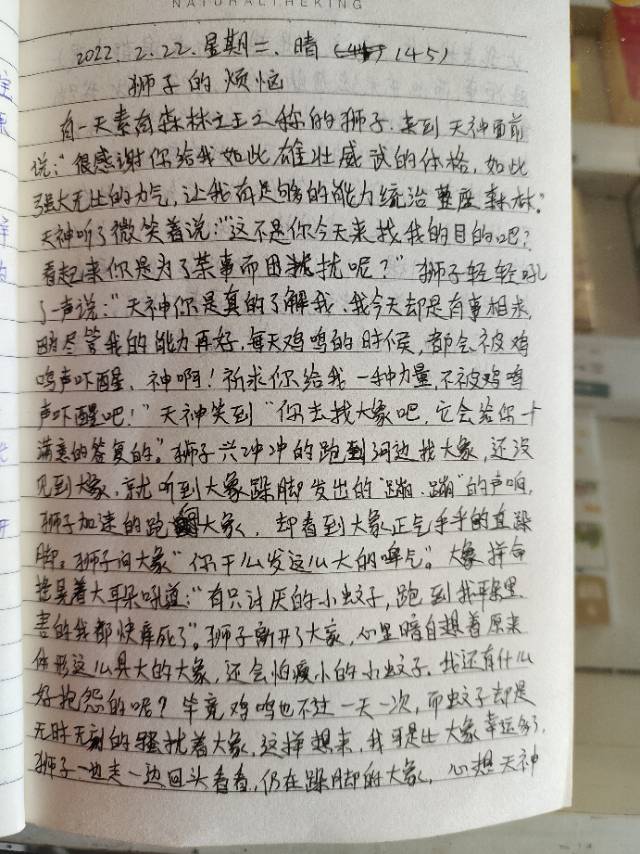 NATURALTHEKING
2022. 2.22. 星期二. 晴 (145)
狮子的烦恼
有一天素有森林之王之称的狮子.来到天神面前
说:"很感谢你给我如此雄壮威武的体格,如此
强大无比的力气,让我有足够的能力统治整座森林."
天神听了微笑着说:"这不是你今天来找我的目的吧?
看起来你是为了某事而困扰呢?"狮子轻轻吼
了一声说:"天神你是真的了解我.我今天却是有事相求,
尽管我的能力再好,每天鸡鸣的时候,都会被鸡
鸣声吓醒,神啊!祈求你给我一种力量,不被鸡鸣
声吓醒吧!"天神笑到"你去找大象吧,它会给你个
满意的答复的。"狮子兴冲冲的跑到河边找大象,还没
见到大象,就听到大象跺脚发出的"蹦,蹦"的声响,
狮子加速的跑大象,却看到大象正气乎乎的直跺
脚。狮子问大象"你干么发这么大的脾气"。大象拼命
摇晃着大耳朵吼道:"有只讨厌的小蚊子,跑到我耳朵里.
害的我都快痒死了"。狮子离开了大象,心里暗自想着原来
体形这么具大的大象,还会怕瘦小的小蚊子.我还有什么
好抱怨的呢?毕竟鸡鸣也不过一天一次,而蚊子却是
无时无刻的骚扰着大象.这样想来,我可是比大象幸运多了,
狮子一边走一边回头看看,仍在跺脚的大象,心想天神